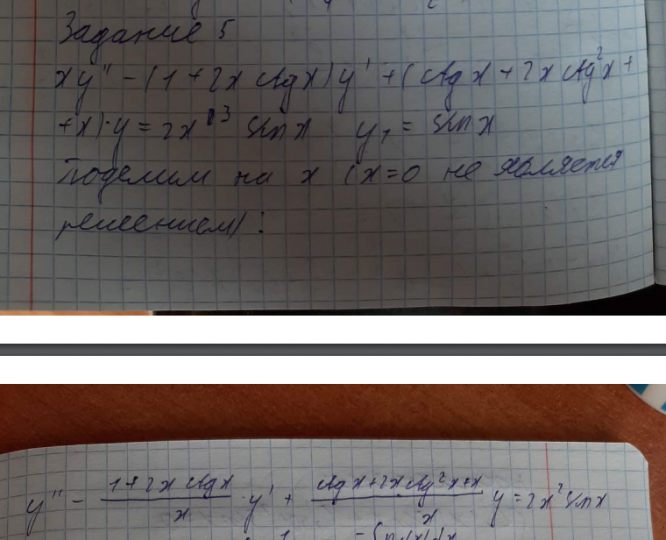 Задание 5
xy'' - (1 + 2x ctgx)y' + (ctgx + 2x ctg²x +
+x)·y = 2x³ sinx y₁ = sinx
Поделим на x (x=0 не является
решением):
y'' - (1+2x ctgx)/x · y' + (ctgx+2x ctg²x+x)/x y = 2x² sinx